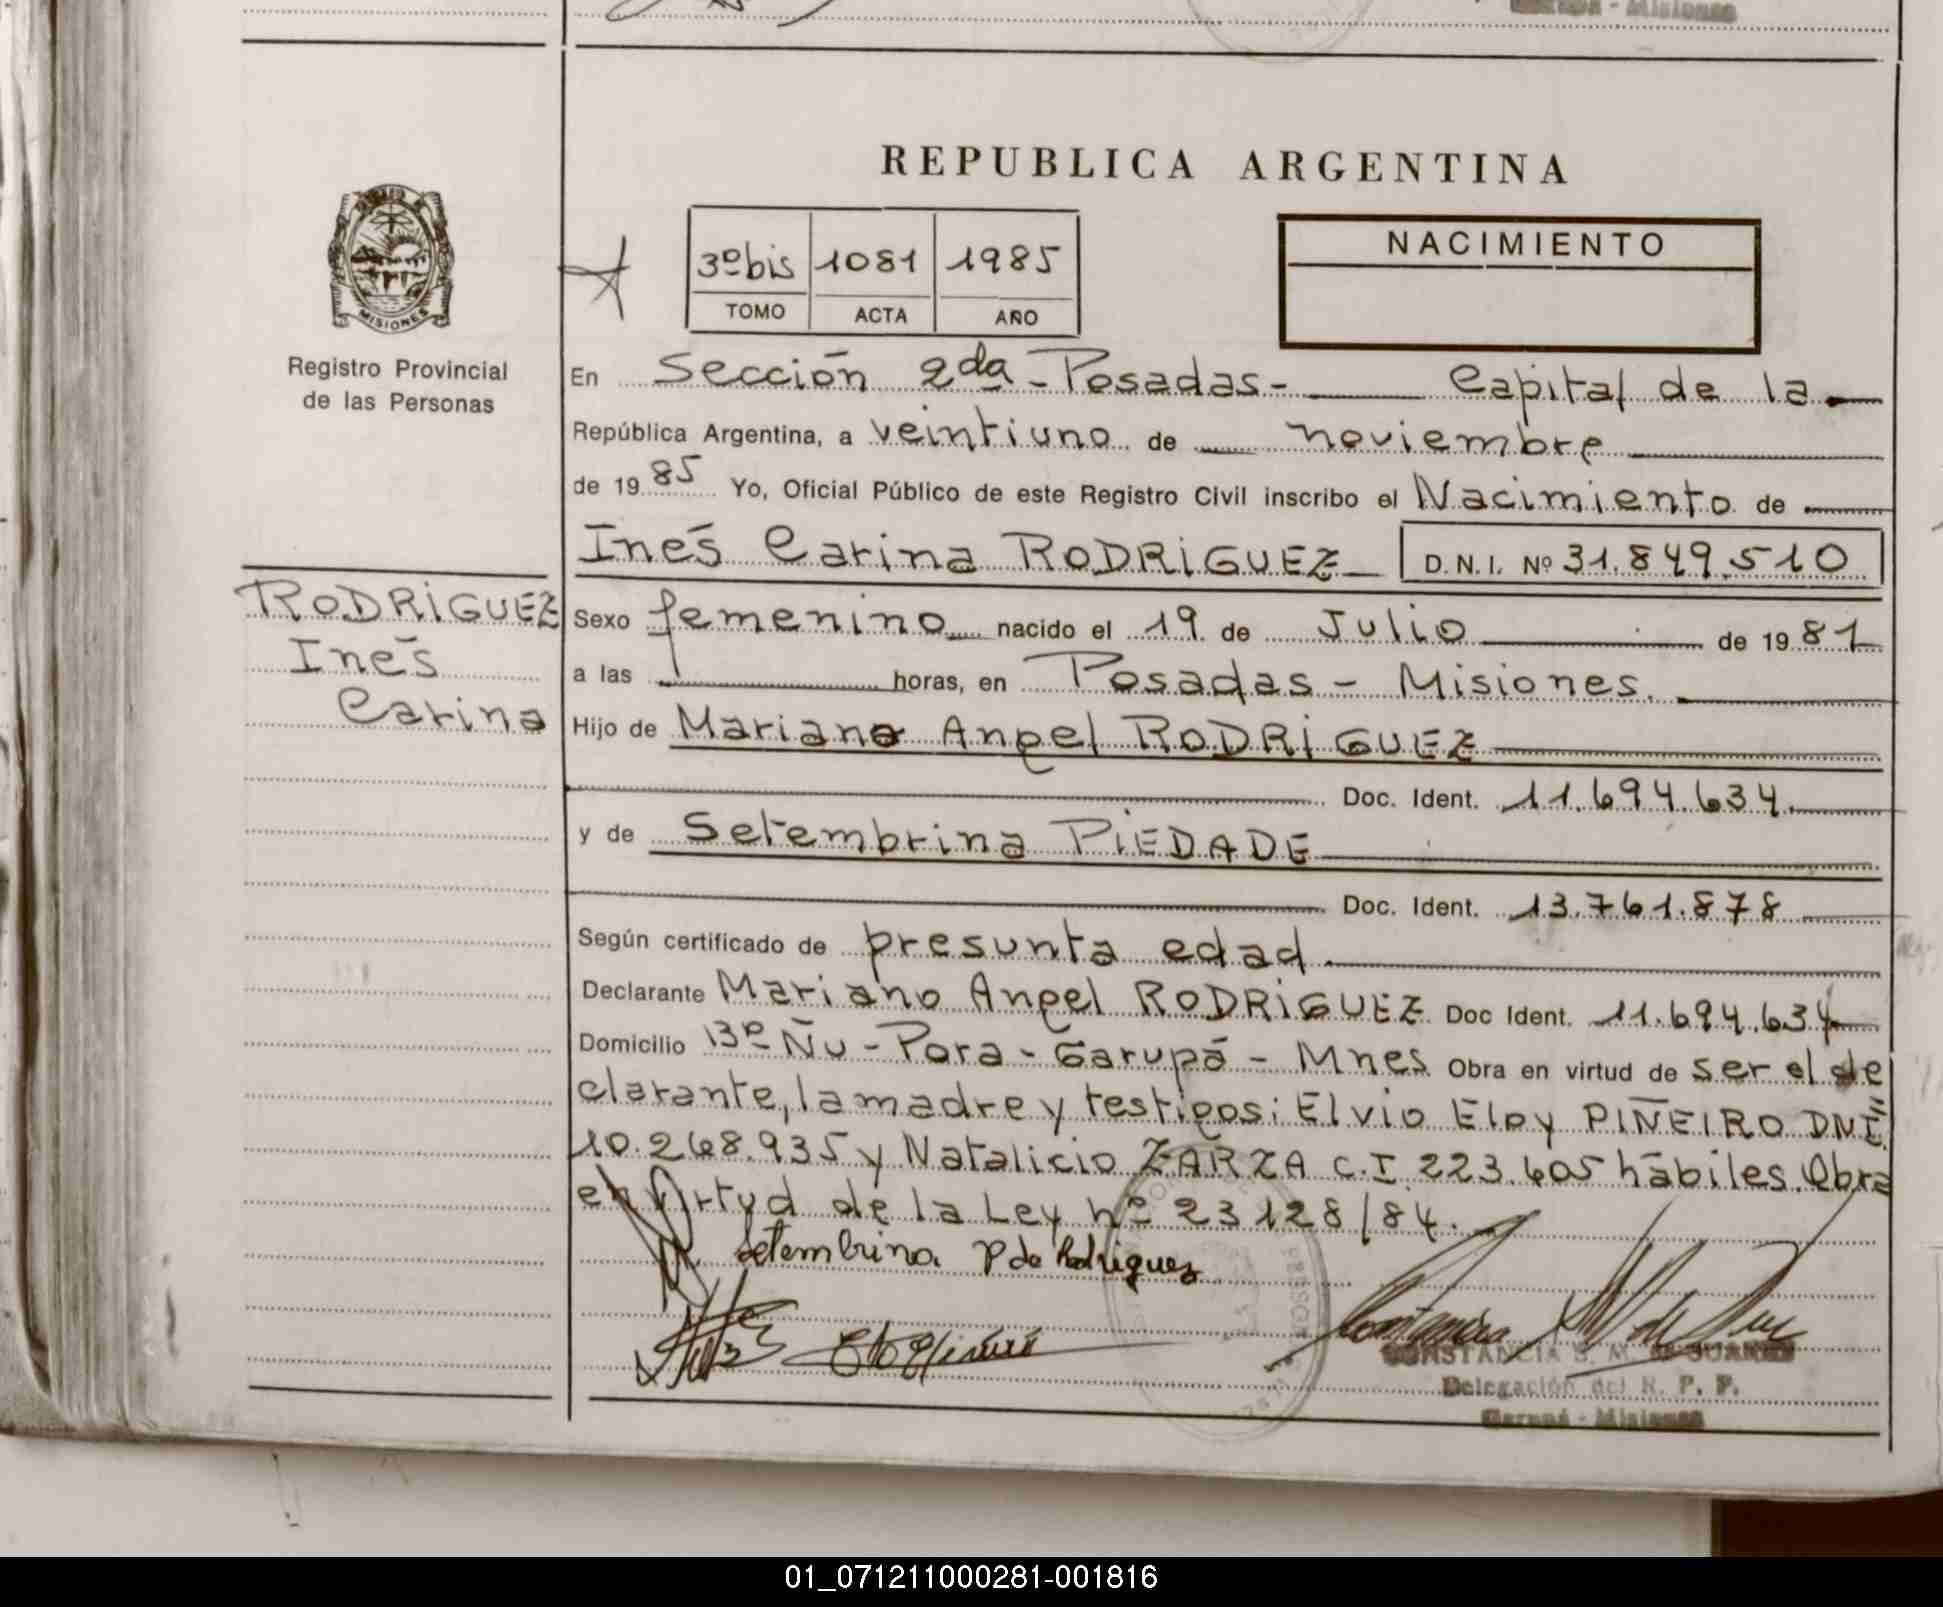 Misiones
REPUBLICA ARGENTINA
3º bis 1081 1985
TOMO ACTA AÑO
NACIMIENTO
MISIONES
Registro Provincial
de las Personas
En Sección 2da - Posadas - Capital de la
República Argentina, a veintiuno de noviembre
de 1985 Yo, Oficial Público de este Registro Civil inscribo el Nacimiento de
Inés Carina RODRIGUEZ D.N.I. Nº 31.849.510
RODRIGUEZ
Inés
Carina
Sexo femenino nacido el 19 de Julio de 1981
a las horas, en Posadas - Misiones.
Hijo de Mariano Angel RODRIGUEZ
Doc. Ident. 11.694.634.
y de Setembrina PIEDADE
Doc. Ident. 13.761.878
Según certificado de presunta edad.
Declarante Mariano Angel RODRIGUEZ Doc Ident. 11.694.634
Domicilio Bº Ñu - Pora - Garupá - Mnes Obra en virtud de ser el de
clarante, la madre y testigos: Elvio Eloy PIÑEIRO DNI
10.268.935 y Natalicio ZARZA C.I. 223.605 hábiles. Obra
en virtud de la Ley nº 23128/84.
Setembrina P de Rodriguez
CONSTANCIA S. M. DE SUAREZ
Delegación del R. P. P.
Garupá - Misiones
01_071211000281-001816